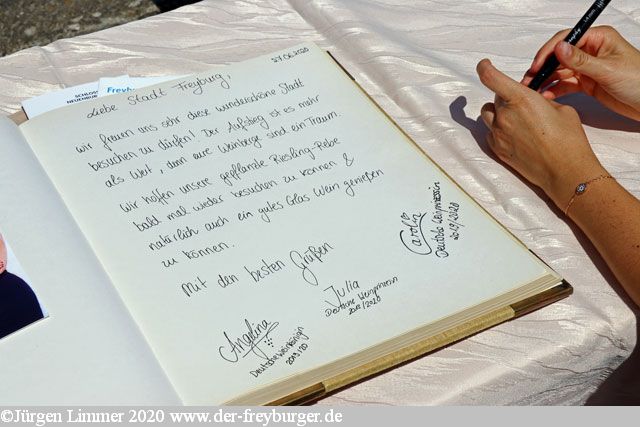 27.06.2020
Liebe Stadt Freyburg,
wir freuen uns sehr diese wunderschöne Stadt
besuchen zu dürfen! Der Aufstieg ist es mehr
als Wert, denn eure Weinberge sind ein Traum.
Wir hoffen unsere gepflanzte Riesling-Rebe
bald mal wieder besuchen zu können &
natürlich auch ein gutes Glas Wein genießen
zu können.
Mit den besten Grüßen
Carolin
Deutsche Weinprinzessin
2019/2020
Julia
Deutsche Weinprinzessin
2019/2020
Angelina
Deutsche Weinkönigin
2019/20
SCHLOSS
NEUENBURG
Freyb
©Jürgen Limmer 2020 www.der-freyburger.de